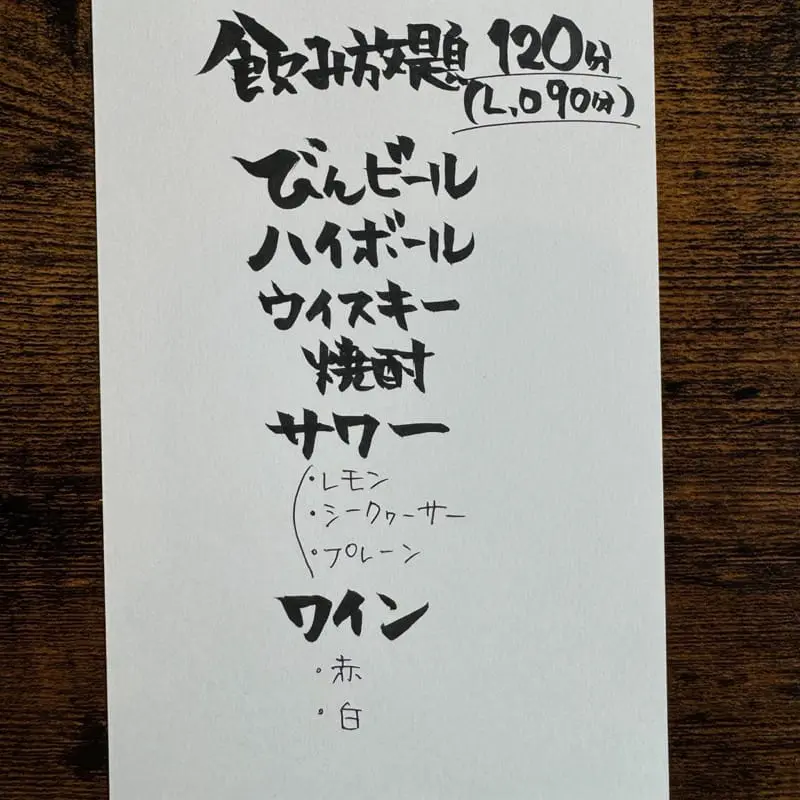 飲み放題 120分
(L.O 90分)
びんビール
ハイボール
ウイスキー
焼酎
サワー
・レモン
・シークヮーサー
・プレーン
ワイン
・赤
・白